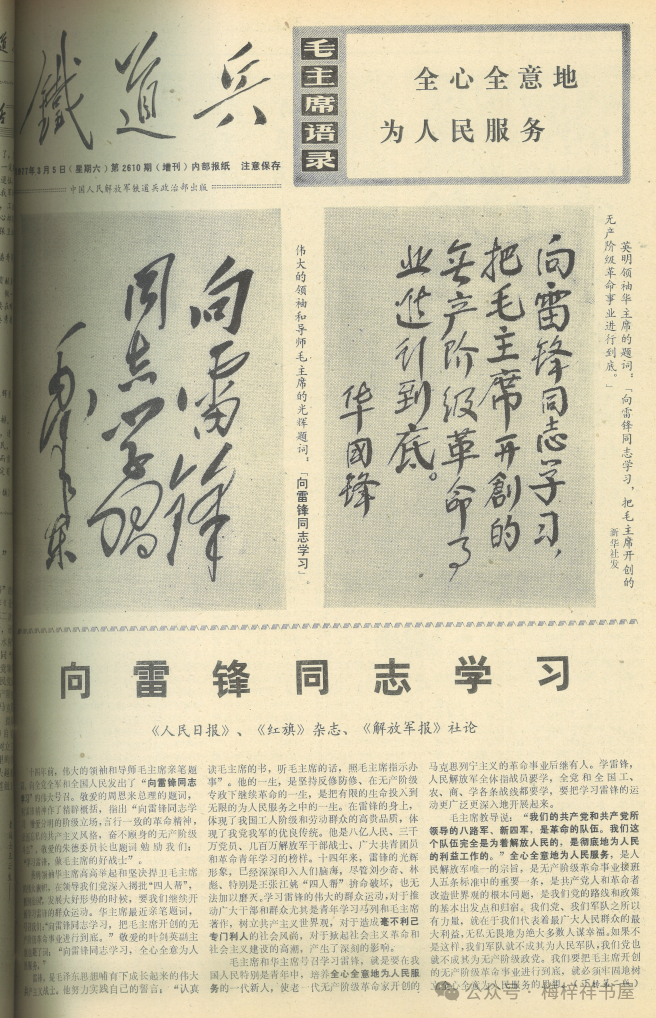 鐵道兵
1977年3月5日（星期六）第2610期（增刊）内部报纸 注意保存
中国人民解放军铁道兵政治部出版
毛主席语录
全心全意地
为人民服务
向雷锋
同志学习
毛泽东
伟大的领袖和导师毛主席的光辉题词：「向雷锋同志学习」
向雷锋同志学习，
把毛主席开創的
无产阶级革命事
业进行到底。
华國锋
英明领袖华主席的题词：「向雷锋同志学习，把毛主席开创的
无产阶级革命事业进行到底。」
新华社发
向雷锋同志学习
《人民日报》、《红旗》杂志、《解放军报》社论
十四年前，伟大的领袖和导师毛主席亲笔题
词，向全党全军和全国人民发出了“向雷锋同志
学习”的伟大号召。敬爱的周恩来总理的题词，
指出“向雷锋同志学
习
憎爱分明的阶级立场，言行一致的革命精神，
公而忘私的共产主义风格，奋不顾身的无产阶级
斗志”。敬爱的朱德委员长也题词勉励我们：
“学习雷锋，做毛主席的好战士”。
英明领袖华主席高高举起和坚决捍卫毛主席
的伟大旗帜，在领导我们党深入揭批“四人帮”，
发展大好形势的时候，要我们继续开
展学习雷锋的群众运动。华主席最近亲笔题词，
“向雷锋同志学习，把毛主席开创的无
产阶级革命事业进行到底。”敬爱的叶剑英副主
席也题词：“向雷锋同志学习，全心全意为人
民服务。”
雷锋，是毛泽东思想哺育下成长起来的伟大
共产主义战士。他努力实践自己的誓言：“认真
读毛主席的书，听毛主席的话，照毛主席指示办
事”。他的一生，是坚持反修防修、在无产阶级
专政下继续革命的一生，是把有限的生命投入到
无限的为人民服务之中的一生。在雷锋的身上，
体现了我国工人阶级和劳动群众的高贵品质，体
现了我党我军的优良传统。他是八亿人民、三千
万党员、几百万解放军干部战士、广大共青团员
和革命青年学习的榜样。十四年来，雷锋的光辉
形象，已经深深印入人们脑海，尽管刘少奇、林
彪，特别是王张江姚“四人帮”拚命破坏，也无
法加以磨灭。学习雷锋的伟大的群众运动，对于推
动广大干部和群众尤其是青年学习马列和毛主席
著作，树立共产主义世界观，对于造成毫不利己
专门利人的社会风尚，对于掀起社会主义革命和
社会主义建设的高潮，产生了深刻的影响。
毛主席和华主席号召学习雷锋，就是要在我
国人民特别是青年中，培养全心全意为人民服
务的一代新人，使老一代无产阶级革命家开创的
马克思列宁主义的革命事业后继有人。学雷锋，
人民解放军全体指战员要学，全党和全国工、
农、商、学各条战线都要学，要把学习雷锋的运
动更广泛更深入地开展起来。
毛主席教导说：“我们的共产党和共产党所
领导的八路军、新四军，是革命的队伍。我们这
个队伍完全是为着解放人民的，是彻底地为人民
的利益工作的。”全心全意为人民服务，是人
民解放军唯一的宗旨，是无产阶级革命事业接班
人五条标准中的重要一条，是共产党人和革命者
改造世界观的根本问题，是我们党的路线和政策
的基本出发点和归宿。我们党、我们军队之所以
有力量，就在于我们代表着最广大人民群众的最
大利益，无私无畏地为绝大多数人谋幸福。如果不
是这样，我们军队就不成其为人民军队，我们党也
就不成其为无产阶级政党。我们要把毛主席开创
的无产阶级革命事业进行到底，就必须牢固地树
立全心全意为人民服务的思想，（下转第二版）
公众号·梅梓祥书屋